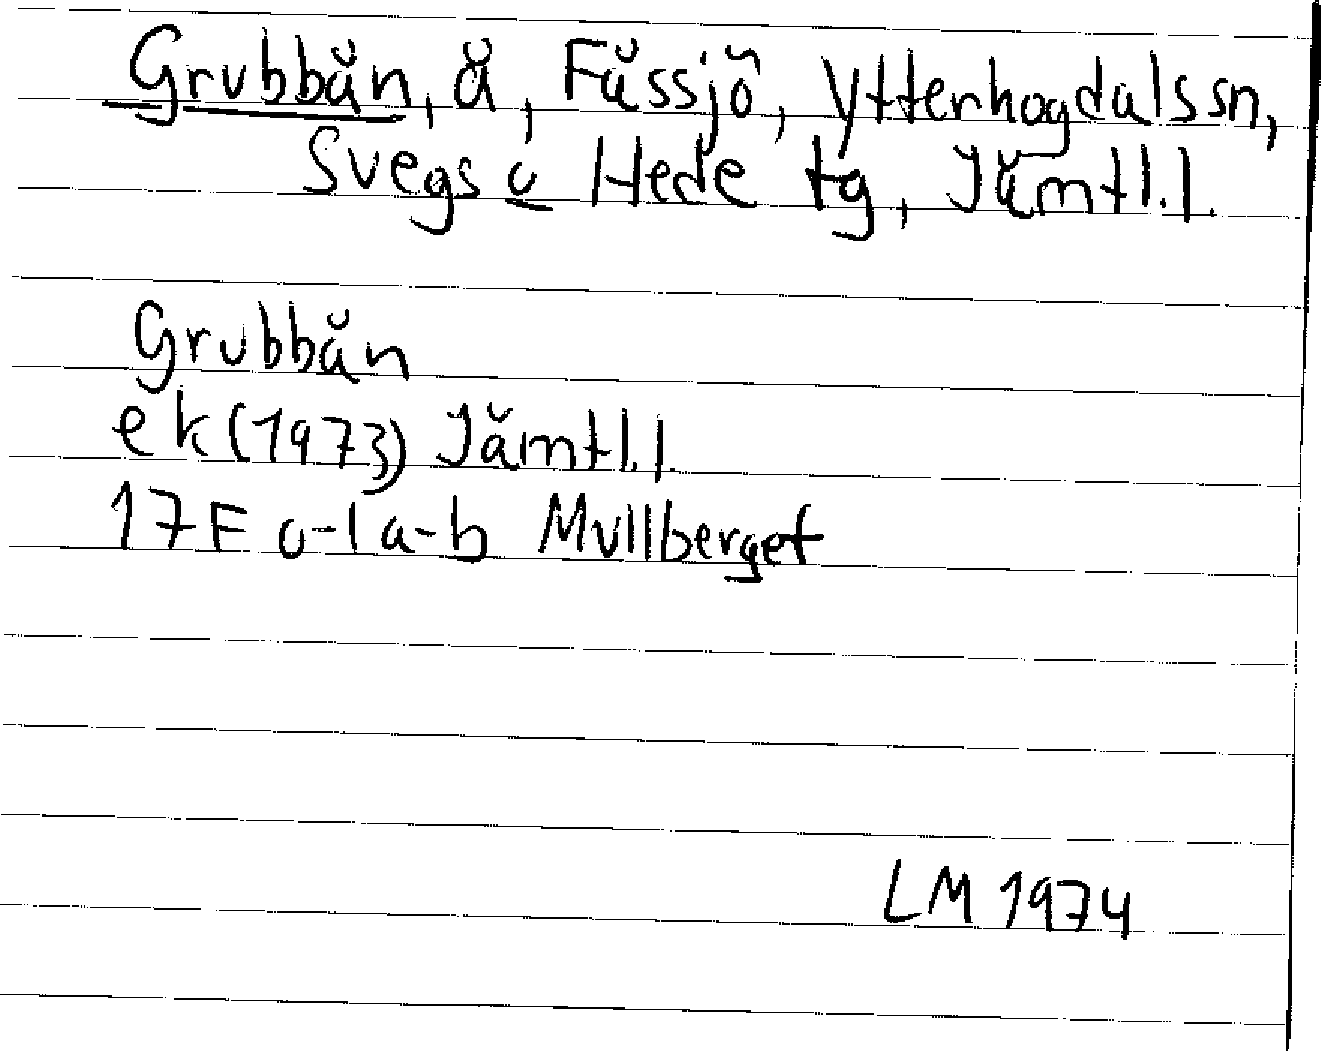 Grubbån, å, Fåssjö, Ytterhogdalssn,
Svegs o Hede tg, Jämtl.l.
Grubbån
ek (1973) Jämtl.l.
17F 0-1 a-b Mullberget
LM 1974